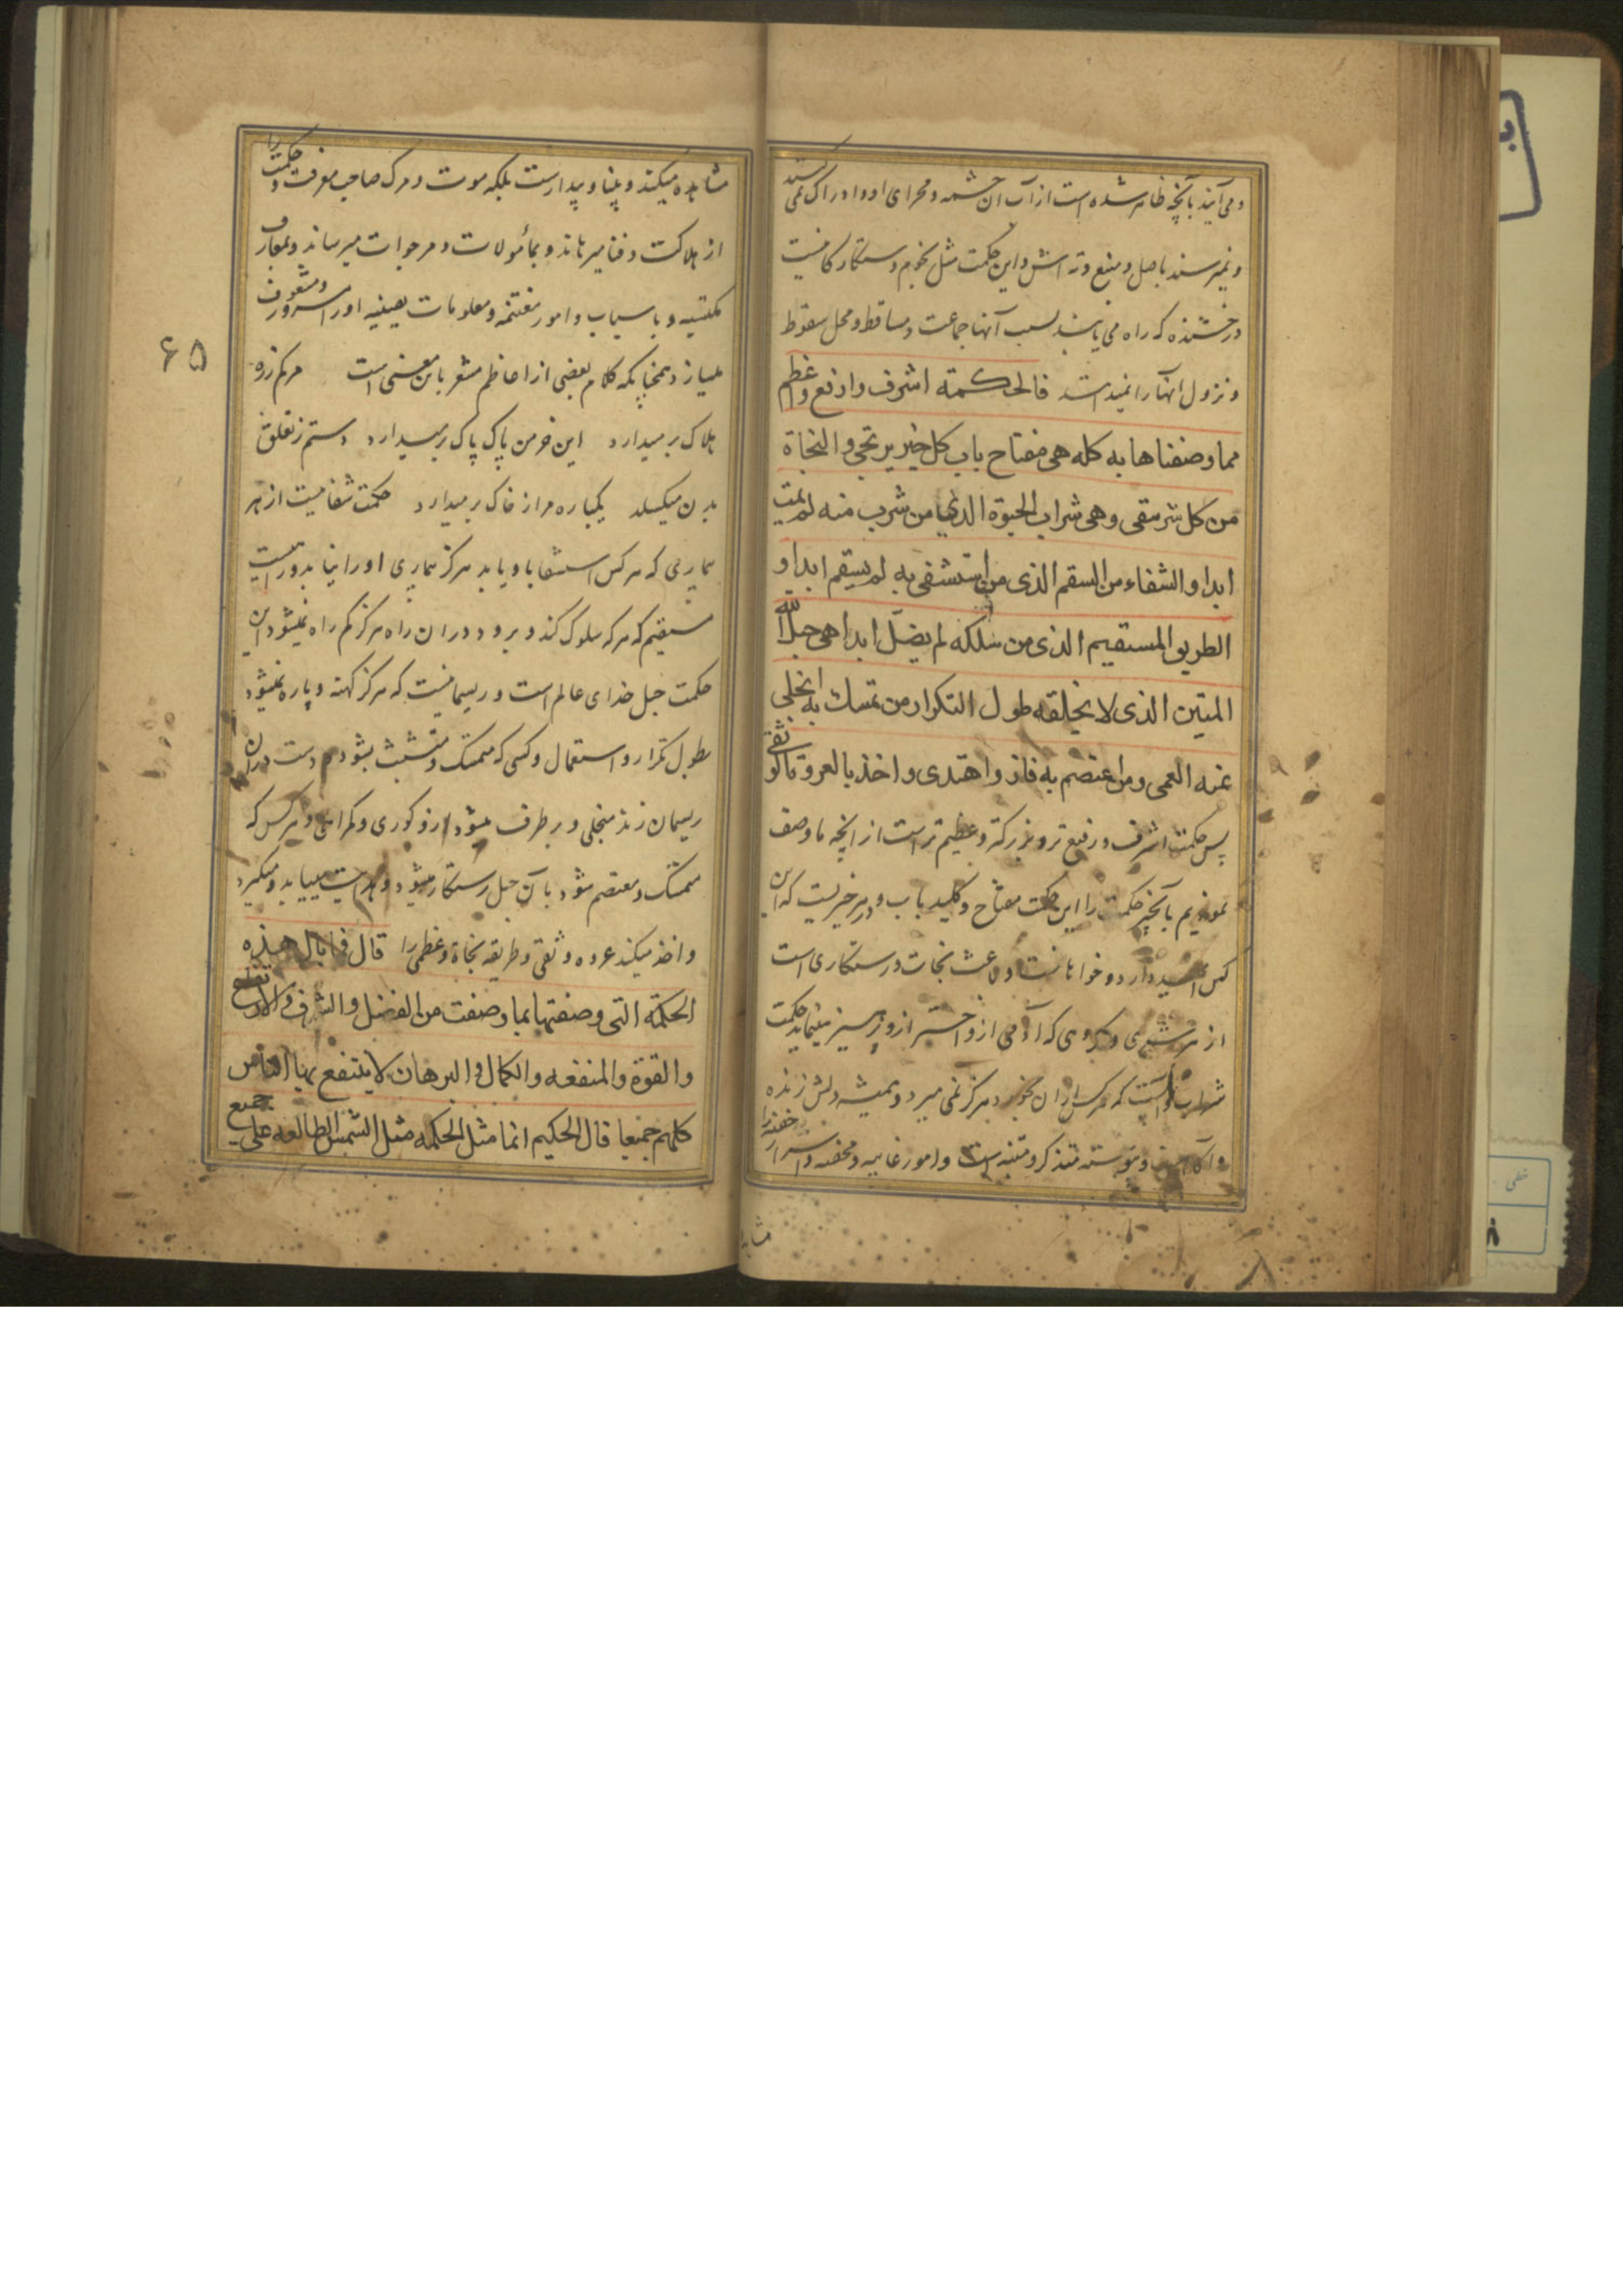 و می آیند بآنچه ظاهر شده است از آب آن چشمه و مجرای او و ادراک نمی کنند
و نمیرسند باصل و منبع و ته اش و این حکمت مثل نجوم و ستکار کانیست
درخشنده که راه می یابند بسبب آنها جماعت و مساقط و محل سقوط
و نزول آنها را نمیدانند فالحکمة اشرف و ارفع و اعظم
مما وصفناها به کله هی مفتاح باب کل خیر یرتجی و النجاة
من کل شر یتقی و هی شراب الحیوة الذی من شرب منه لم یمت
ابدا و الشفاء من السقم الذی من استشفی به لم یسقم ابدا و
الطریق المستقیم الذی من سلکه لم یضل ابدا هی حبل الله
المتین الذی لا یخلقه طول التکرار من تمسک به انجلی
عنه العمی و من اعتصم به فاز و اهتدی و اخذ بالعروة الوثقی
پس حکمت اشرف و رفیع تر و بزرکتر و عظیم تر است از آنچه ما وصف
نمودیم بآنچه حکمت را این حکمت مفتاح و کلید باب و در هر خیریست که این
کس امید دارد و خواهانست و باعث نجات و رستکاری است
از هر شری و مکروهی که آدمی ازو احتراز و پرهیز مینماید حکمت
شراب که هر کس از آن بخورد هرکز نمی میرد و همیشه دلش زنده
و آکاه است و پیوسته متذکر و متنبه است و امور غایبه و مخفیه و اسرار خفیه را
مشاهده
مشاهده میکند و بینا و بیدارست بلکه موت و مرک صاحب معرفت و حکمت را
از هلاکت و فنا میرهاند و بمأمولات و مرجوات میرساند و بمعارف
مکتسبه و باسباب و امور مغتنمه و معلومات یقینیه او را مسرور و مشعوف
میسازد همچنانکه کلام بعضی از اعاظم مشعر باین معنی است مرکم زره
هلاک برمیدارد این خرمن پاک پاک برمیدارد دستم ز تعلق
بدن میکسلد یکباره مرا ز خاک برمیدارد حکمت شفائیست از هر
بیماری که هر کس استشفا باو یابد هرکز بیماری او را نیابد و راهیست
مستقیم که هر که سلوک کند و برود در آن راه هرکز کم راه نمیشود این
حکمت حبل خدای عالم است و ریسمانیست که هرکز کهنه و پاره نمیشود
بطول تکرار و استعمال و کسی که متمسک و متشبث بشود و دست در آن
ریسمان زند منجلی و برطرف میشود ازو کوری و کمراهی و هر کس که
متمسک و معتصم شود بآن حبل رستکار میشود و هدایت مییابد و میکیرد
و اخذ میکند عروه وثقی و طریقه نجاة و عظمی را قال فما بال هذه
الحکمة التی وصفتها بما وصفت من الفضل و الشرف و الارتفاع
و القوة و المنفعه و الکمال و البرهان لا ینتفع بها الناس
کلهم جمیعا قال الحکیم انما مثل الحکمه مثل الشمس الطالعه علی جمیع
۶۵
خطی